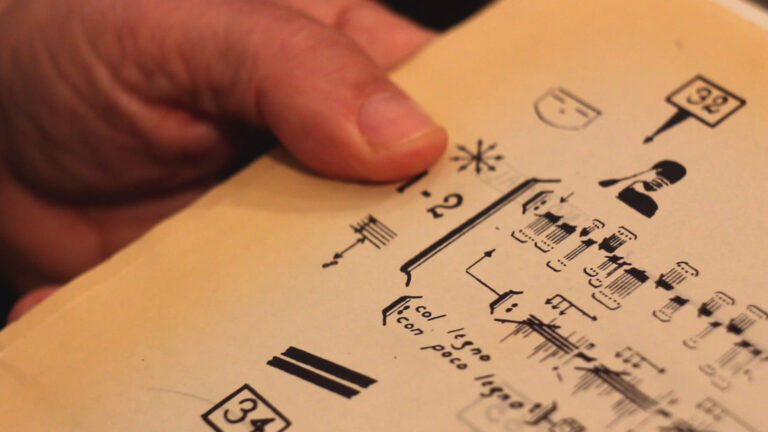 32
1-2
col legno
con poco legno
34